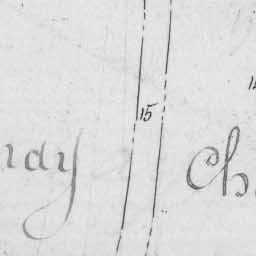 15
ndy Ch